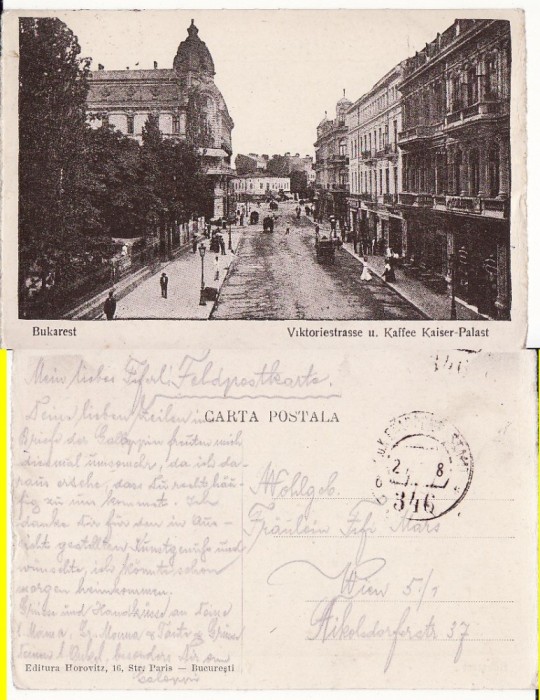 Bukarest
Viktoriestrasse u. Kaffee Kaiser-Palast
Mein lieber Fifal! Feldpostkarte.
CARTA POSTALA
Deine lieben Zeilen im
Briefe der freuten mich
diesmal umsomehr, da ich da-
raus ersehe, dass du recht häu-
fig zu uns kommst. Ich
danke dir für den in Aus-
sicht gestellten Kunstgenuss und
wünschte, ich könnte schon
morgen heimkommen.
Grüsse und Handküsse an Deine
l. Mama, Gr. Mama & Tante & Grüsse
besonders Dir von
2 8
346
Wohlgeb.
Fräulein Fifi Mars
Wien 5./1
Nikolsdorferstr 37
Editura Horovitz, 16, Str. Paris — Bucureşti